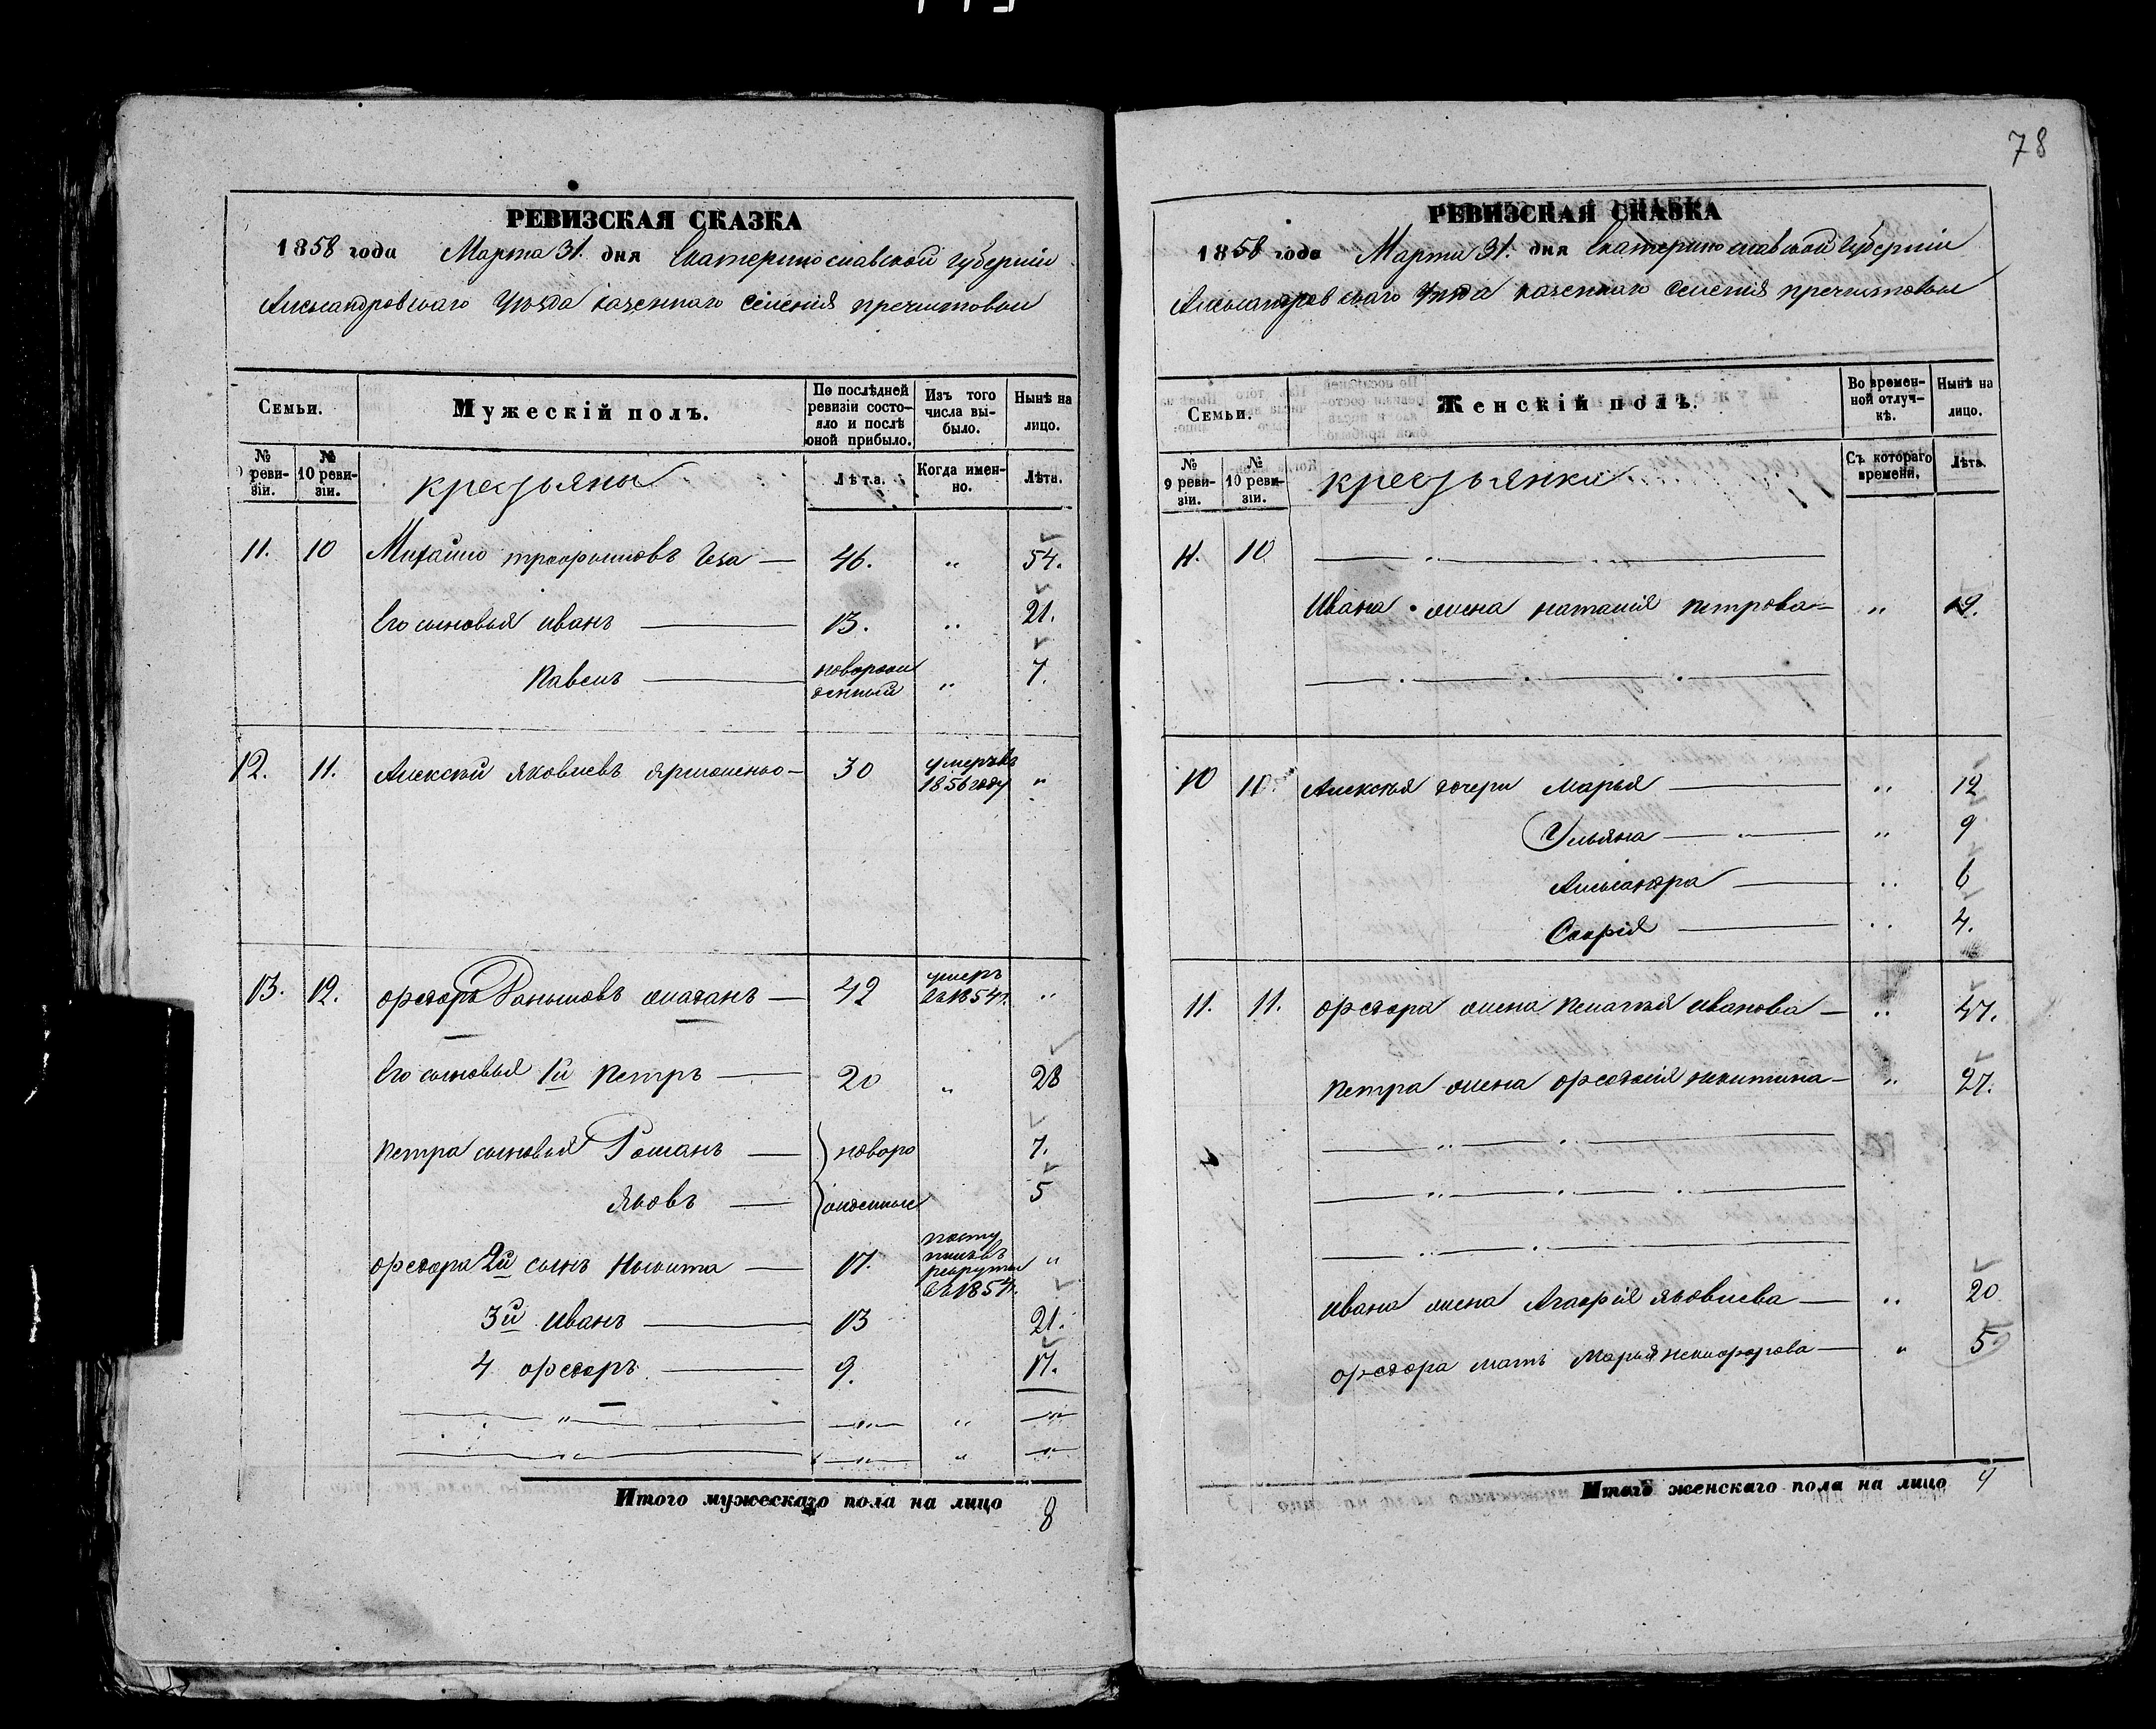 78
РЕВИЗСКАЯ СКАЗКА
1858 года Марта 31. дня Екатеринославской губерніи
Александровскаго Уѣзда казеннаго селенія пречистовки
Семьи.
Мужескій полъ.
По послѣдней ревизіи состояло и послѣ оной прибыло.
Изъ того числа выбыло.
Нынѣ на лицо.
№ 9 ревизіи.
№ 10 ревизіи.
крестьяны
Лѣта.
Когда именно.
Лѣта.
11. 10 Михайло трофимовъ 46. " 54.
Его сыновья иванъ 13. " 21.
павелъ новорожденный " 7.
12. 11. Алексѣй яковлевъ 30 умеръ въ 1856 году "
13. 12. федоръ 42 умеръ въ 1854 г. "
Его сыновья 1й петръ 20 " 28
петра сыновья Романъ } новоро 7.
яковъ } жденные 5
федора 2й сынъ Никита 17. поступилъ въ рекруты въ 1854 г. "
3й иванъ 13 21.
4 федоръ 9. 17.
Итого мужескаго пола на лицо 8
РЕВИЗСКАЯ СКАЗКА
1858 года Марта 31. дня Екатеринославской губерніи
Александровскаго Уѣзда казеннаго селенія пречистовки
Семьи.
Женскій полъ.
Во временной отлучкѣ.
Нынѣ на лицо.
№ 9 ревизіи.
№ 10 ревизіи.
крестьянки
Съ котораго времени.
Лѣта.
11. 10
Ивана жена наталія петрова " 19.
10 10 Алексѣя дочери Марья " 12
Ульяна " 9
Александра " 6
Софія " 4.
11. 11. федора жена пелагѣя иванова " 47.
петра жена федосія никитина " 27.
ивана жена Агафія яковлева " 20
федора мать Марья никифорова " 5
Итого женскаго пола на лицо 9